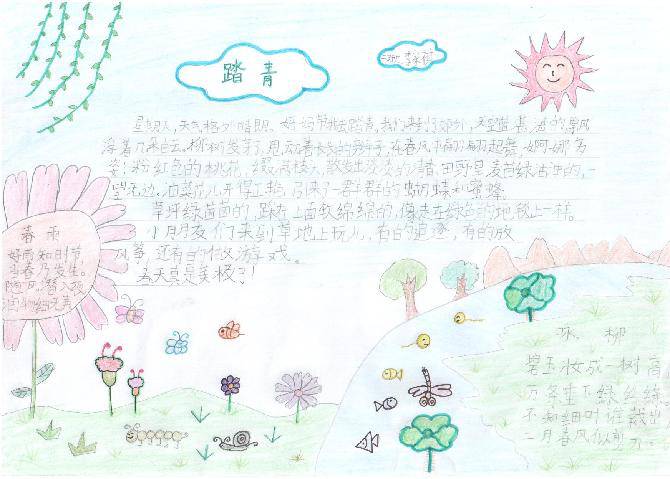 踏青
星期人,天气格外晴朗。妈妈带我去踏青,我们来到了郊外,天空蓝蓝的,飘
浮着几朵白云。柳树发芽了,甩动着长长的辫子,在春风中翩翩起舞,婀娜多
姿;粉红色的桃花,缀满枝头,散发出淡淡的清香,田野里麦苗绿油油的,一
望无边。油菜花儿开得正艳,引来了一群群的蝴蝶和蜜蜂。
草坪绿茵茵的,踩在上面软绵绵的,像走在绿色的地毯上一样。
小朋友们来到草地上玩儿,有的追逐,有的放
风筝,还有的做游戏。
春天真是美极了!
春雨
好雨知时节,
当春乃发生。
随风潜入夜,
润物细无声
咏柳
碧玉妆成一树高
万条垂下绿丝绦
不知细叶谁裁出
二月春风似剪刀。